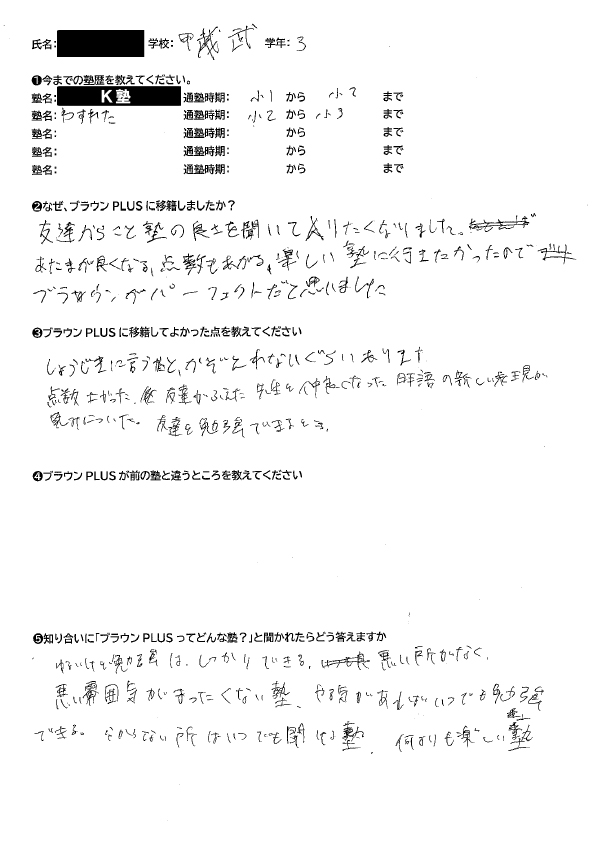 氏名: 学校: 甲陵武 学年: 3
❶今までの塾歴を教えてください。
塾名: K塾 通塾時期: 小1 から 小2 まで
塾名: わすれた 通塾時期: 小2 から 小3 まで
塾名: 通塾時期: から まで
塾名: 通塾時期: から まで
塾名: 通塾時期: から まで
❷なぜ、ブラウンPLUSに移籍しましたか?
友達からこと塾の良さを聞いて入りたくなりました。
あたまが良くなる、点数もあがる、楽しい塾に行きたかったので
ブラウンがパーフェクトだと思いました
❸ブラウンPLUSに移籍してよかった点を教えてください
しょうじきに言うと、かぞえれないぐらいあります
点数上がった、友達がふえた 先生と仲良くなった 日本語の新しい表現が
身についた。友達と勉強できるところ。
❹ブラウンPLUSが前の塾と違うところを教えてください
❺知り合いに「ブラウンPLUSってどんな塾?」と聞かれたらどう答えますか
勉強は、しっかりできる、悪い所がなく、
悪い雰囲気がまったくない塾、やる気があればいつでも勉強
できる。分からない所はいつでも聞ける塾、何よりも楽しい塾